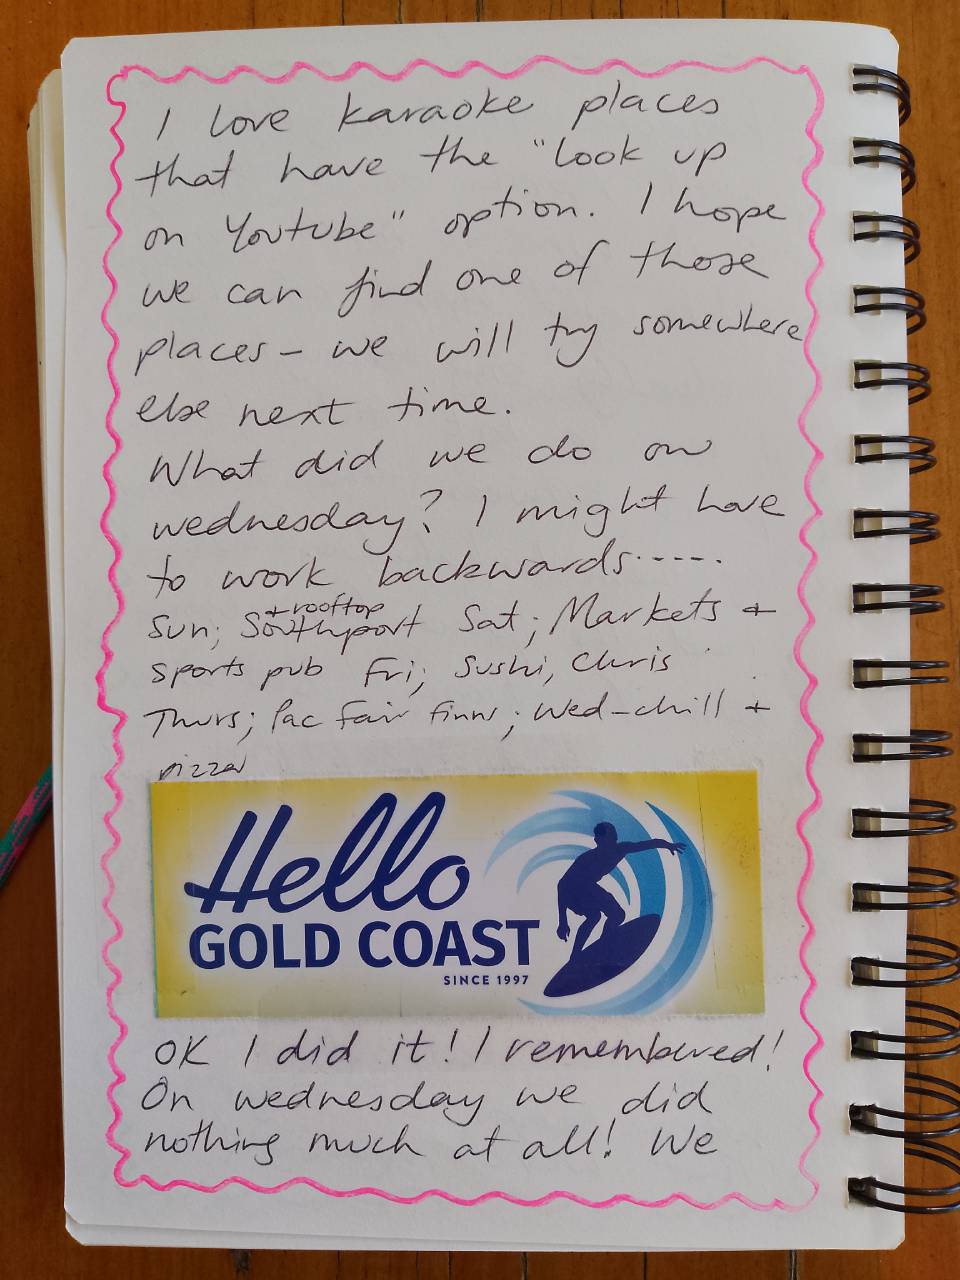 I love karaoke places
that have the "look up
on Youtube" option. I hope
we can find one of those
places – we will try somewhere
else next time.
What did we do on
wednesday? I might have
to work backwards.....
+ rooftop
Sun; Southport Sat; Markets +
sports pub Fri; Sushi, Chris
Thurs; Pac Fair Finns; Wed – chill +
pizza
Hello
GOLD COAST
SINCE 1997
OK I did it! I remembered!
On wednesday we did
nothing much at all! We